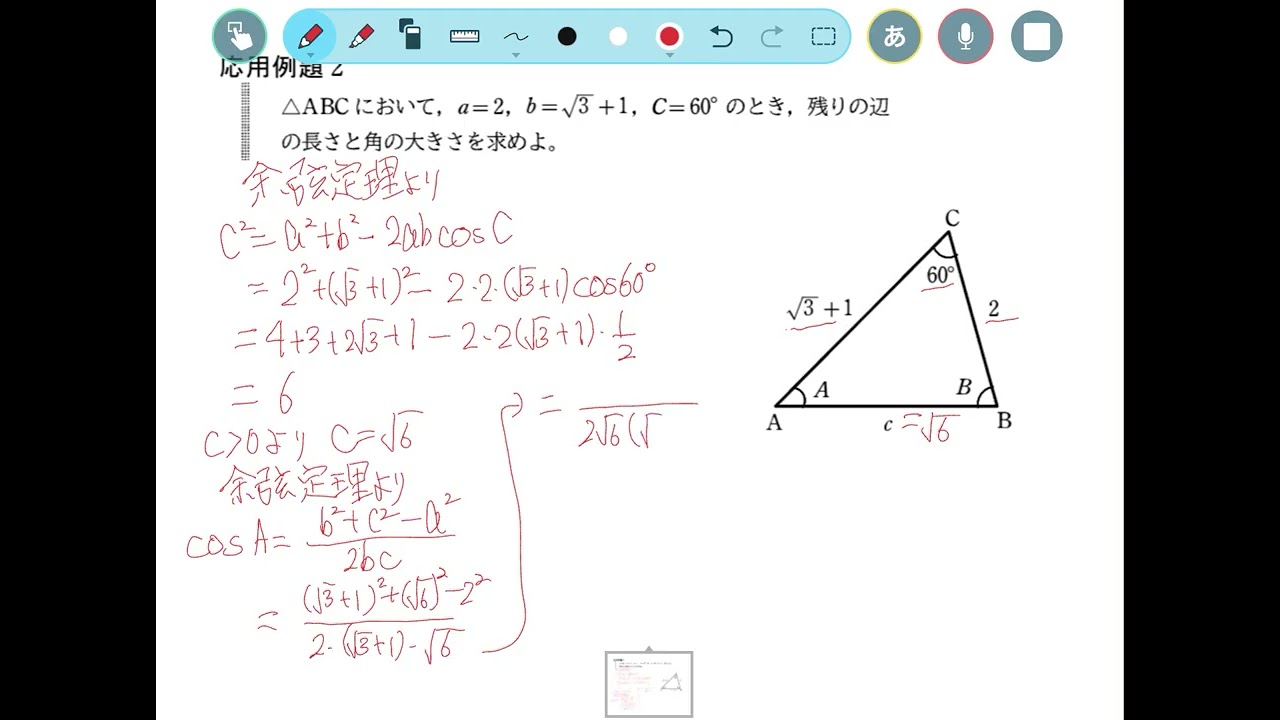 あ
応用例題 2
△ABC において，a=2，b=√3+1，C=60° のとき，残りの辺
の長さと角の大きさを求めよ。
余弦定理より
C²=a²+b²-2abcosC
=2²+(√3+1)²-2・2・(√3+1)cos60°
=4+3+2√3+1-2・2(√3+1)・1/2
=6
C>0より C=√6
余弦定理より
cosA=(b²+c²-a²)/2bc
=((√3+1)²+(√6)²-2²)/(2・(√3+1)・√6)
= /2√6(√
C
60°
√3+1
2
A
B
A
c=√6
B